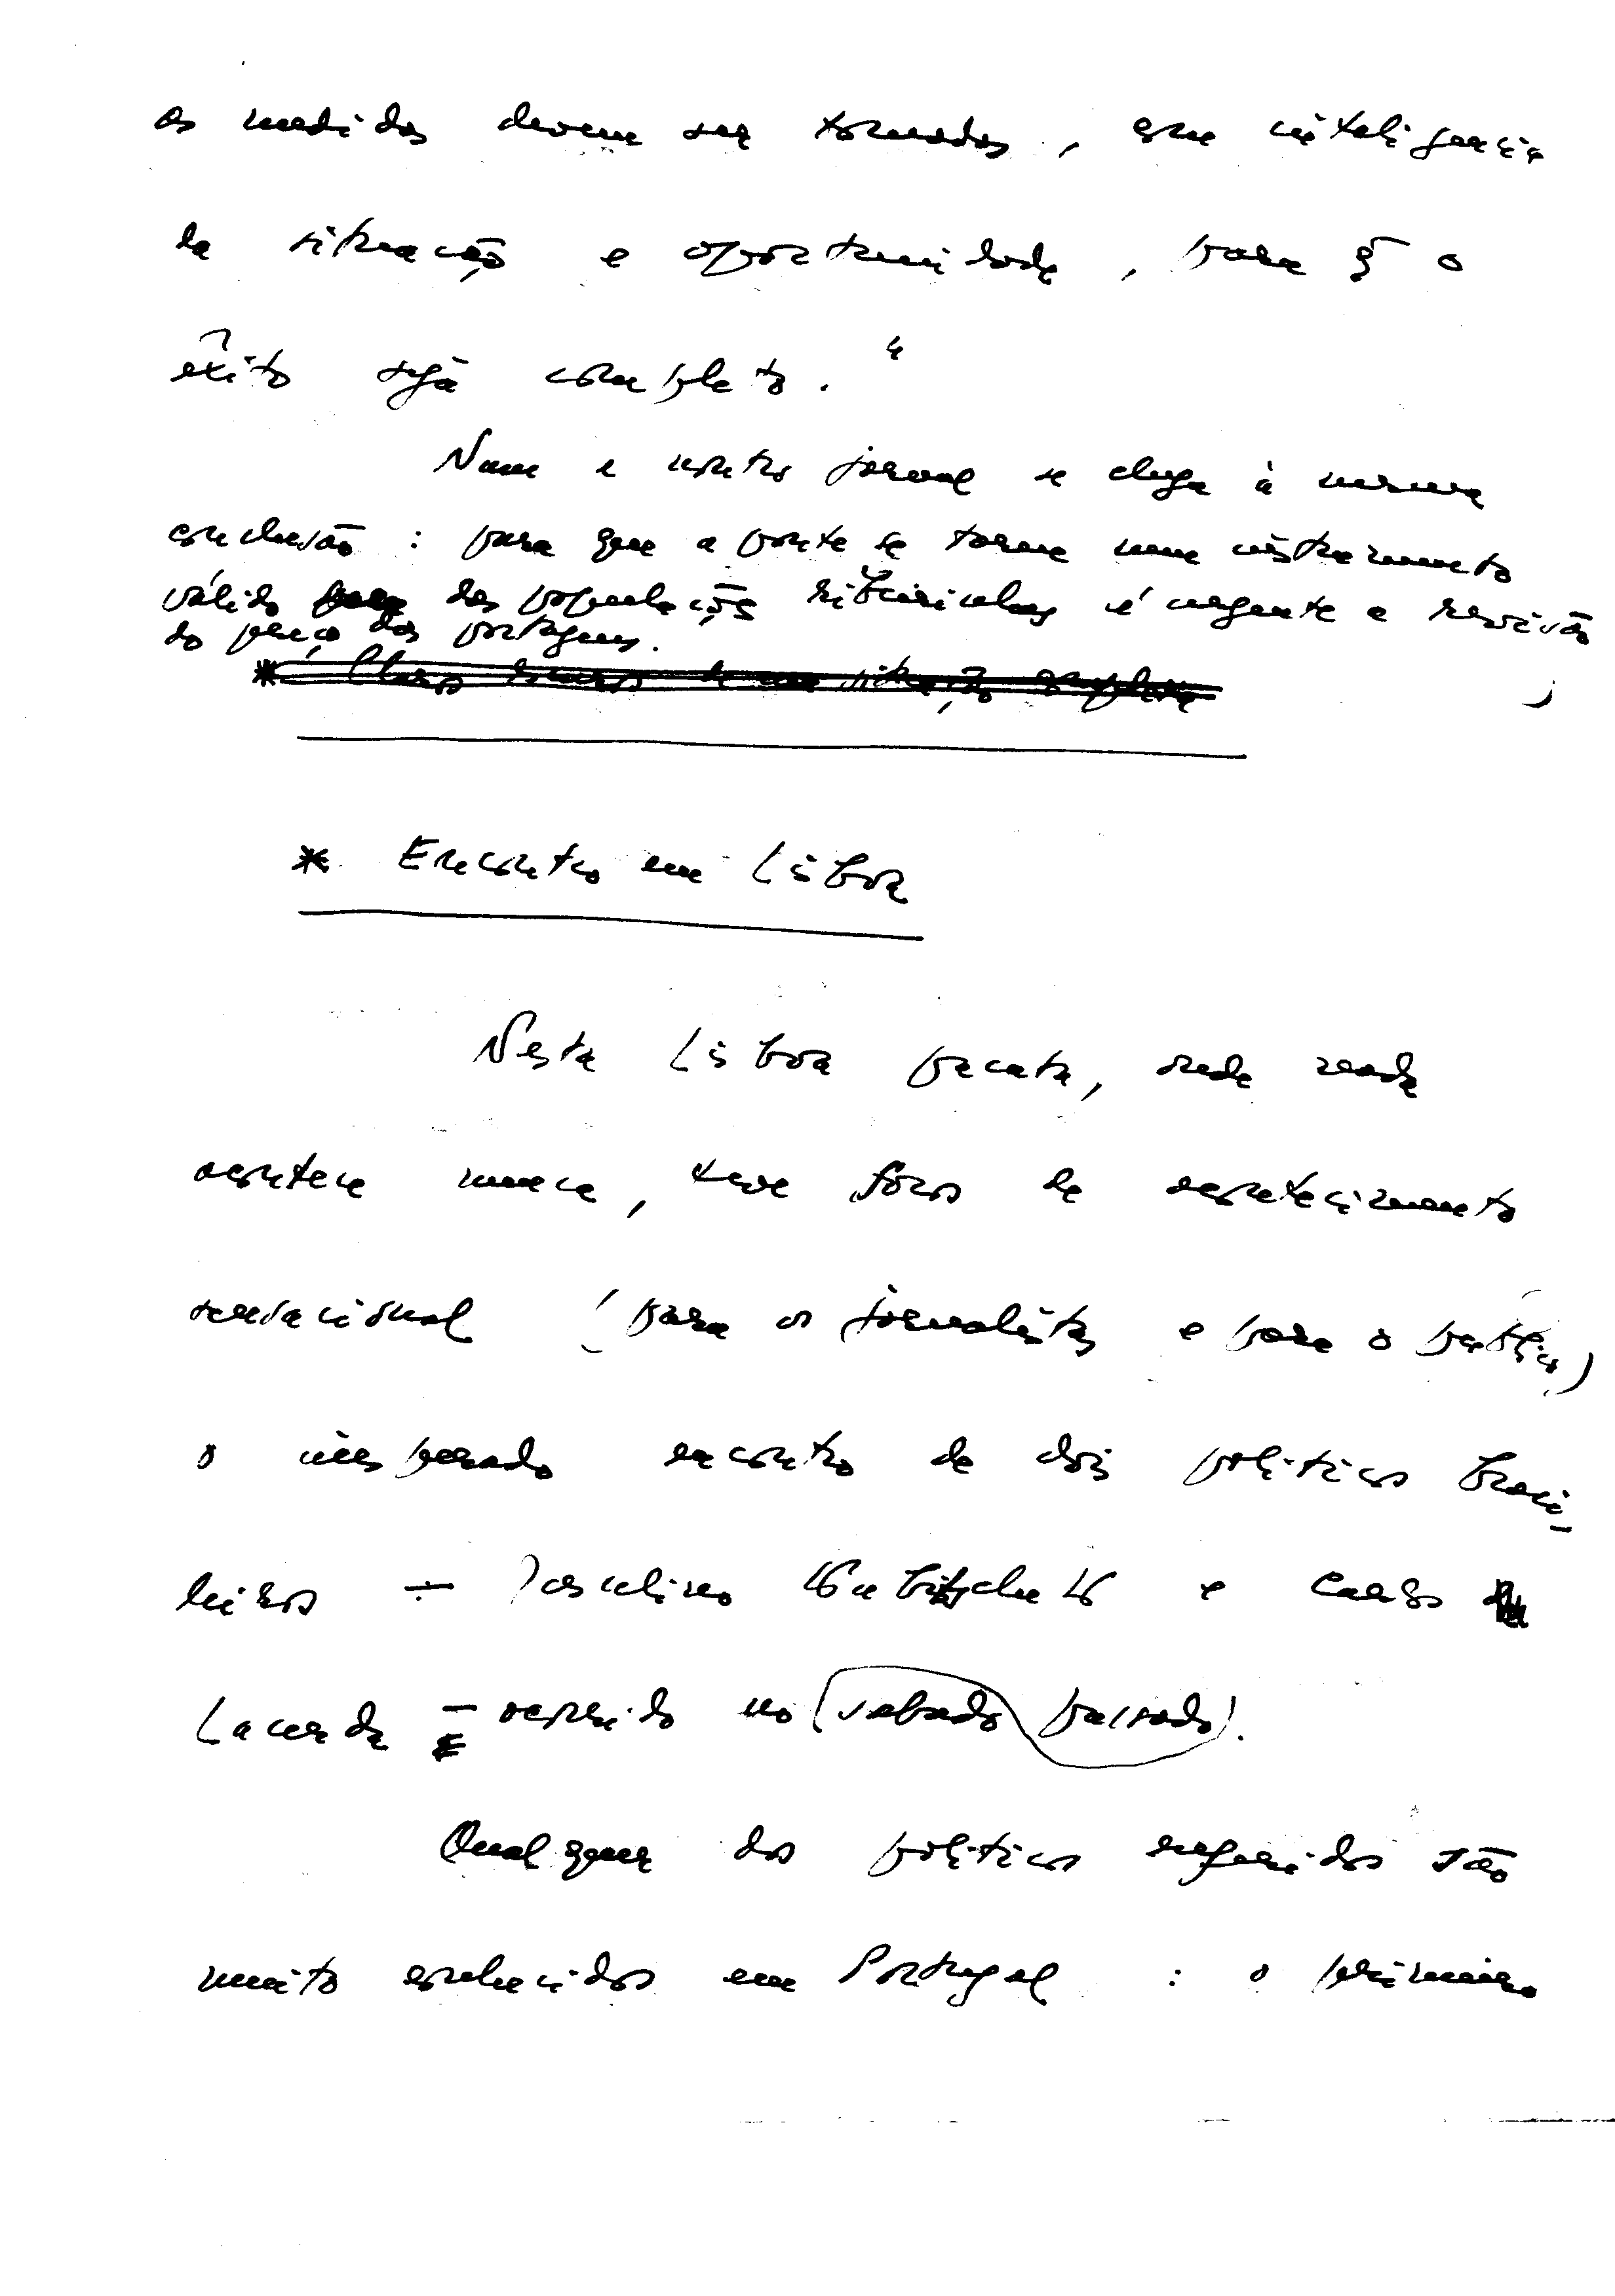 as medidas devem ser tomadas, com inteligência
da situação e oportunidade, para q̃ o
êxito sejá completo."
Num e noutro jornal se chega à mesma
conclusão: para que a ponte se torne num instrumento
válido das populações ribeirinhas é urgente a revisão
do preço das portagens.
* Encontro em Lisboa
Nesta Lisboa pacata, onde nada
acontece nunca, teve foros de acontecimento
sensacional (para os jornalistas e para o público)
o inesperado encontro de dois politicos brasi-
leiros — Juscelino Kubitschek e Carlos
Lacerda — ocorrido no (sabado passado).
Qualquer dos politicos referidos são
muito conhecidos em Portugal: o primeiro